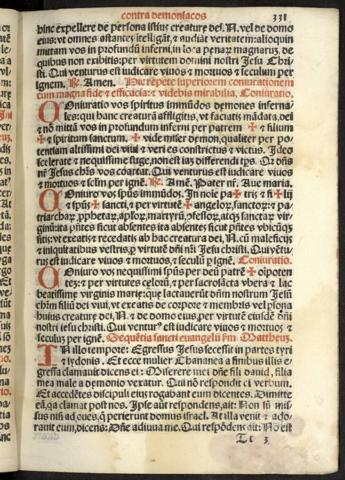 contra demoniacos 331
hinc expellere de persona istius creature dei. N. vel de domo
eius: vt omnes astantes intelligāt, ⁊ audiāt veritatem: alioquin
mittam vos in profundū inferni, in loca penarū magnarū, de
quibus non exibitis: per virtutem domini nostri Jesu Chri
sti. Qui venturus est iudicare viuos ⁊ mortuos ⁊ seculum per
ignem. ℟. Amen. Hic repete superiorem coniurationem
cum magna fide ⁊ efficacia: ⁊ videbis mirabilia. Coniuratio.
COniuratio vos spiritus immūdos demones inferna
les: qui hanc creaturā affligitis, vt faciatis mādata, dei
⁊ nō mittā vos in profundum inferni per patrem ✠ ⁊ filium
✠ ⁊ spiritum sanctum. ✠ vide miser demon, qualiter per po
tentiam altissimi dei viui ⁊ veri es constrictus ⁊ victus. Ideo
scelerate ⁊ nequissime fuge, non est iaz differendi tp̄s. Or dn̄s
nr̄ Jesus chr̄s vos coartat. Qui venturus est iudicare viuos
⁊ mortuos ⁊ sclm̄ per ignē. ℟. Amē. Pater nr̄. Aue maria.
COniuro vos spūs immūdos. In noīe pa ✠ tris ⁊ fi ✠ lij
⁊ spūs ✠ sancti, ⁊ per virtutē ✠ angelor̄, sanctor̄: ⁊ pa
triarchar̄, prophetar̄, apl̄or̄, martyrū, ꝯfessor̄, atqꝫ sanctar̄ vir
ginū: ita pn̄tes sicut absentes ita absentes sicut pn̄tes vbicūqꝫ
sitis: vt exeatis ⁊ recedatis ab hac creatura dei. N. cū maleficijs
⁊ iniquitatibus vestris, p̱ virtutē dn̄i nr̄i Jesu christi. Qui vētu
rus est iudicare viuos ⁊ mortuos, ⁊ seculū p̱ ignē. Coniuratio.
COniuro vos nequissimi spūs per deū patrē ✠ oīpoten
tez: ⁊ per virtutes celorū, ⁊ per sacrosācta vbera ⁊ lac
beatissime virginis marie: que lactauerūt dn̄m nostrum Jesū
chr̄m filiū dei viui, vt exeatis de corpore ⁊ membris vel p̱sona
huius creature dei. N. ⁊ de domo eius, per virtutē eiusdē dn̄i
nostri iesu christi. Qui venturꝰ est iudicare viuos ⁊ mortuos ⁊
seculuz per ignē. Sequētia sancti euangelij s̄m Mattheuz.
IN illo tempore: Egressus Jesus secessit in partes tyri
⁊ sydonis. Et ecce mulier Chananea a finibus illis e-
gressa clamauit dicens ei: Miserere mei dn̄e fili dauid, filia
mea male a demonio vexatur. Qui nō respondit ei verbum.
Et accedētes discipuli eiꝰ rogabant eum dicentes. Dimitte
eā, qa clamat post nos. Ipse aūt respondens, ait: Non sū mis-
sus nisi ad oues, q̄ perierunt domus israel. At illa venit ⁊ ado-
rauit eum, dicens: Dn̄e adiuua me. Qui respōdens ait: Nō est
Tt 3